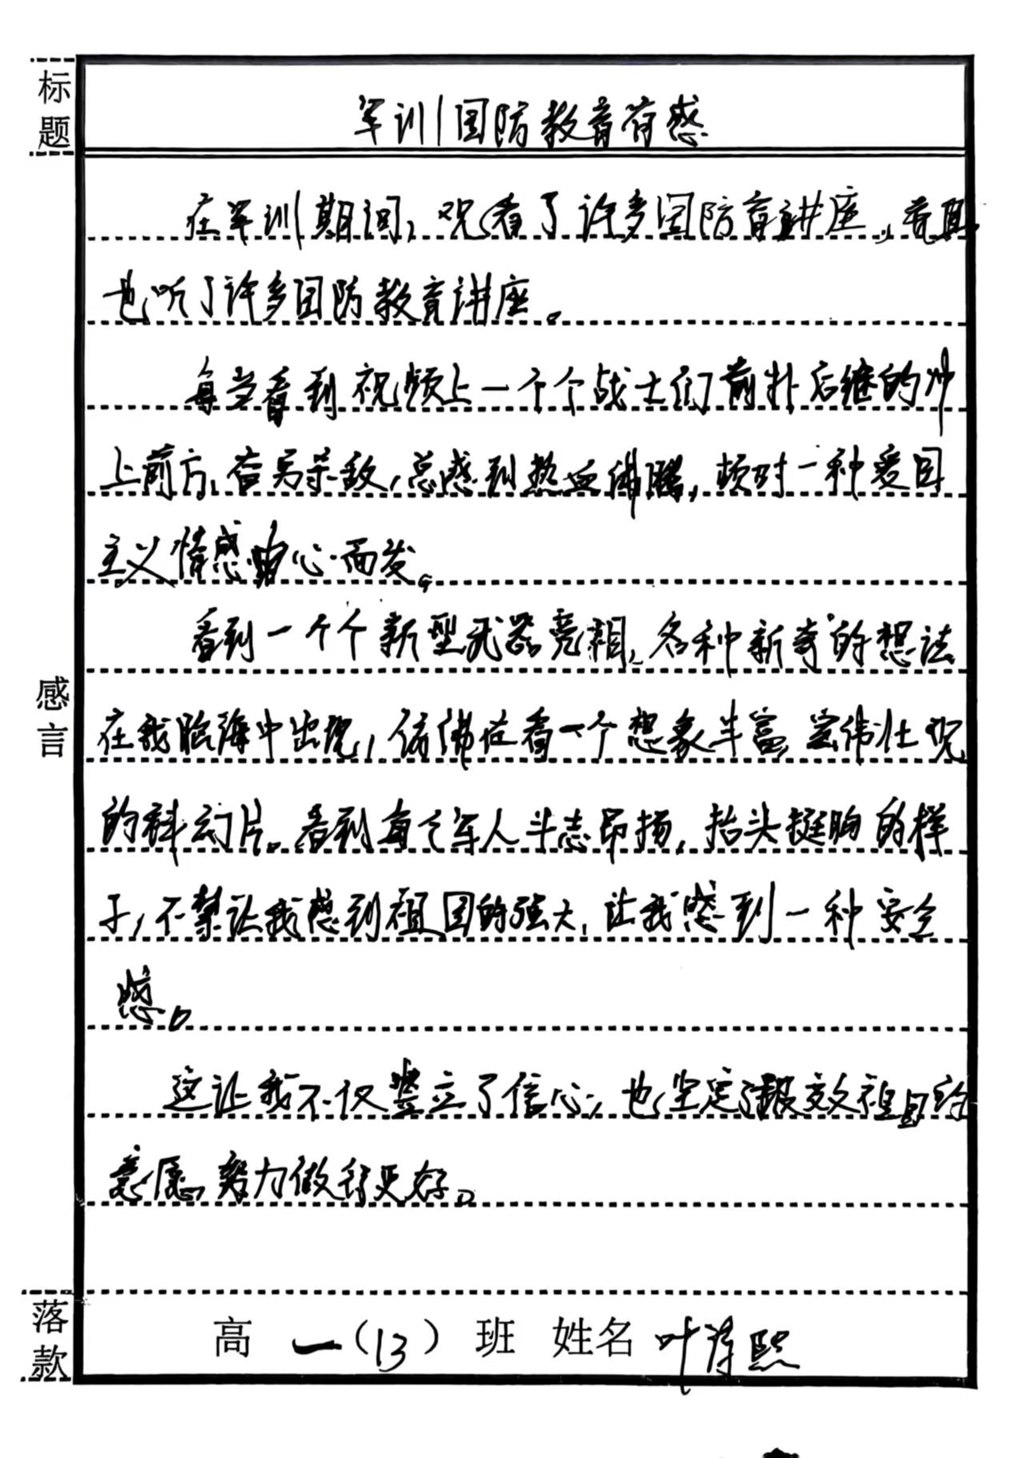 标题
军训国防教育有感
在军训期间，观看了许多国防育讲座，并且
也听了许多国防教育讲座。
每当看到视频上一个个战士们前扑后继的冲
上前方，奋勇杀敌，总感到热血沸腾，顿时一种爱国
主义情感由心而发。
看到一个个新型武器亮相，各种新奇的想法
在我脑海中出现，仿佛在看一个想象丰富，宏伟壮观
的科幻片。看到每个军人斗志昂扬，抬头挺胸的样
子，不禁让我感到祖国的强大，让我感到一种安全
感。
这让我不仅竖立了信心，也坚定了报效祖国的
意愿，努力做得更好。
感言
落款
高一（13）班 姓名 叶 熙